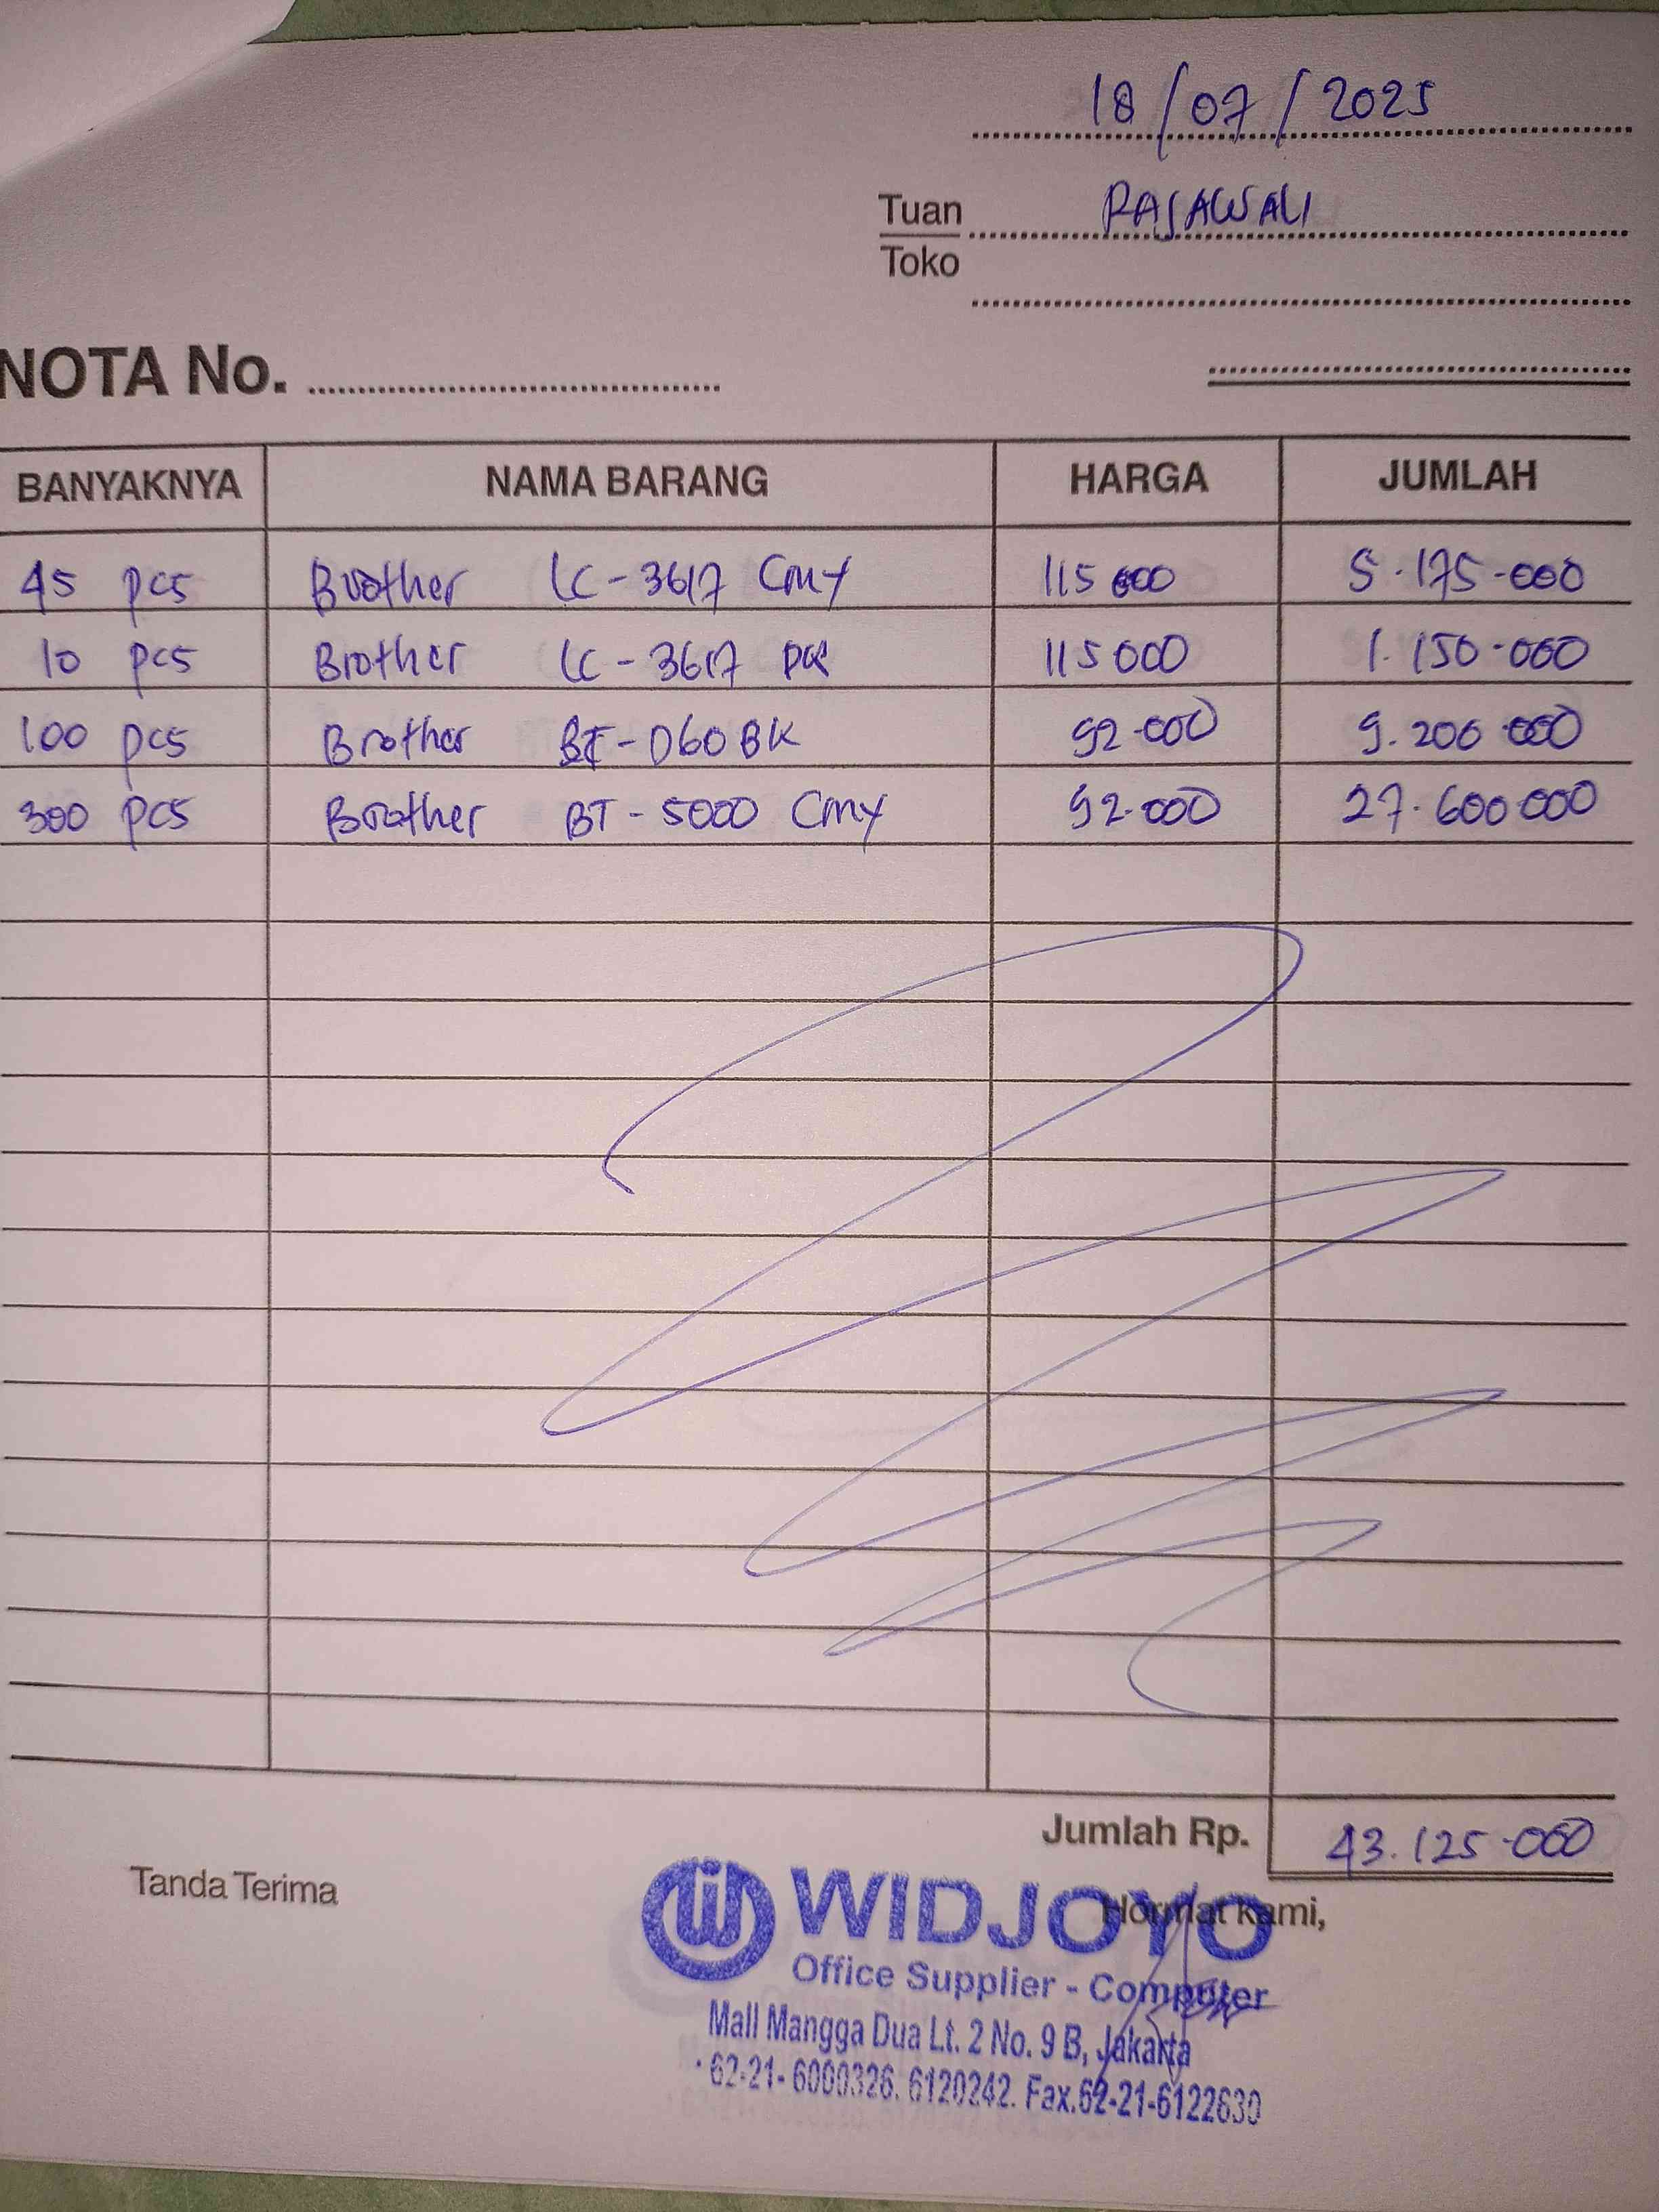 18/07/2025
Tuan RAJAWALI
Toko
NOTA No.
BANYAKNYA NAMA BARANG HARGA JUMLAH
45 pcs Brother LC-3617 CMY 115 000 5.175-000
10 pcs Brother LC-3617 115 000 1.150-000
100 pcs Brother BT-D60 BK 92-000 9.200 000
300 pcs Brother BT-5000 CMY 92.000 27.600 000
Jumlah Rp. 43.125-000
Tanda Terima
Hormat kami,
WIDJOYO
Office Supplier - Computer
Mall Mangga Dua Lt. 2 No. 9 B, Jakarta
62-21- 6000326. 6120242. Fax.62-21-6122630